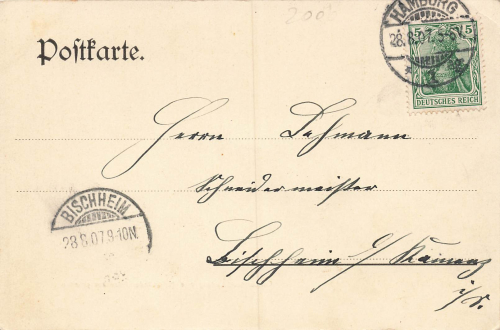 200
Postkarte.
HAMBURG
28.8.07. 5-6N.
5 5
DEUTSCHES REICH
Herrn Lehmann
Schneidermeister
BISCHHEIM
28.8.07.9-10N.
Bischheim b/Kamenz
i/S.